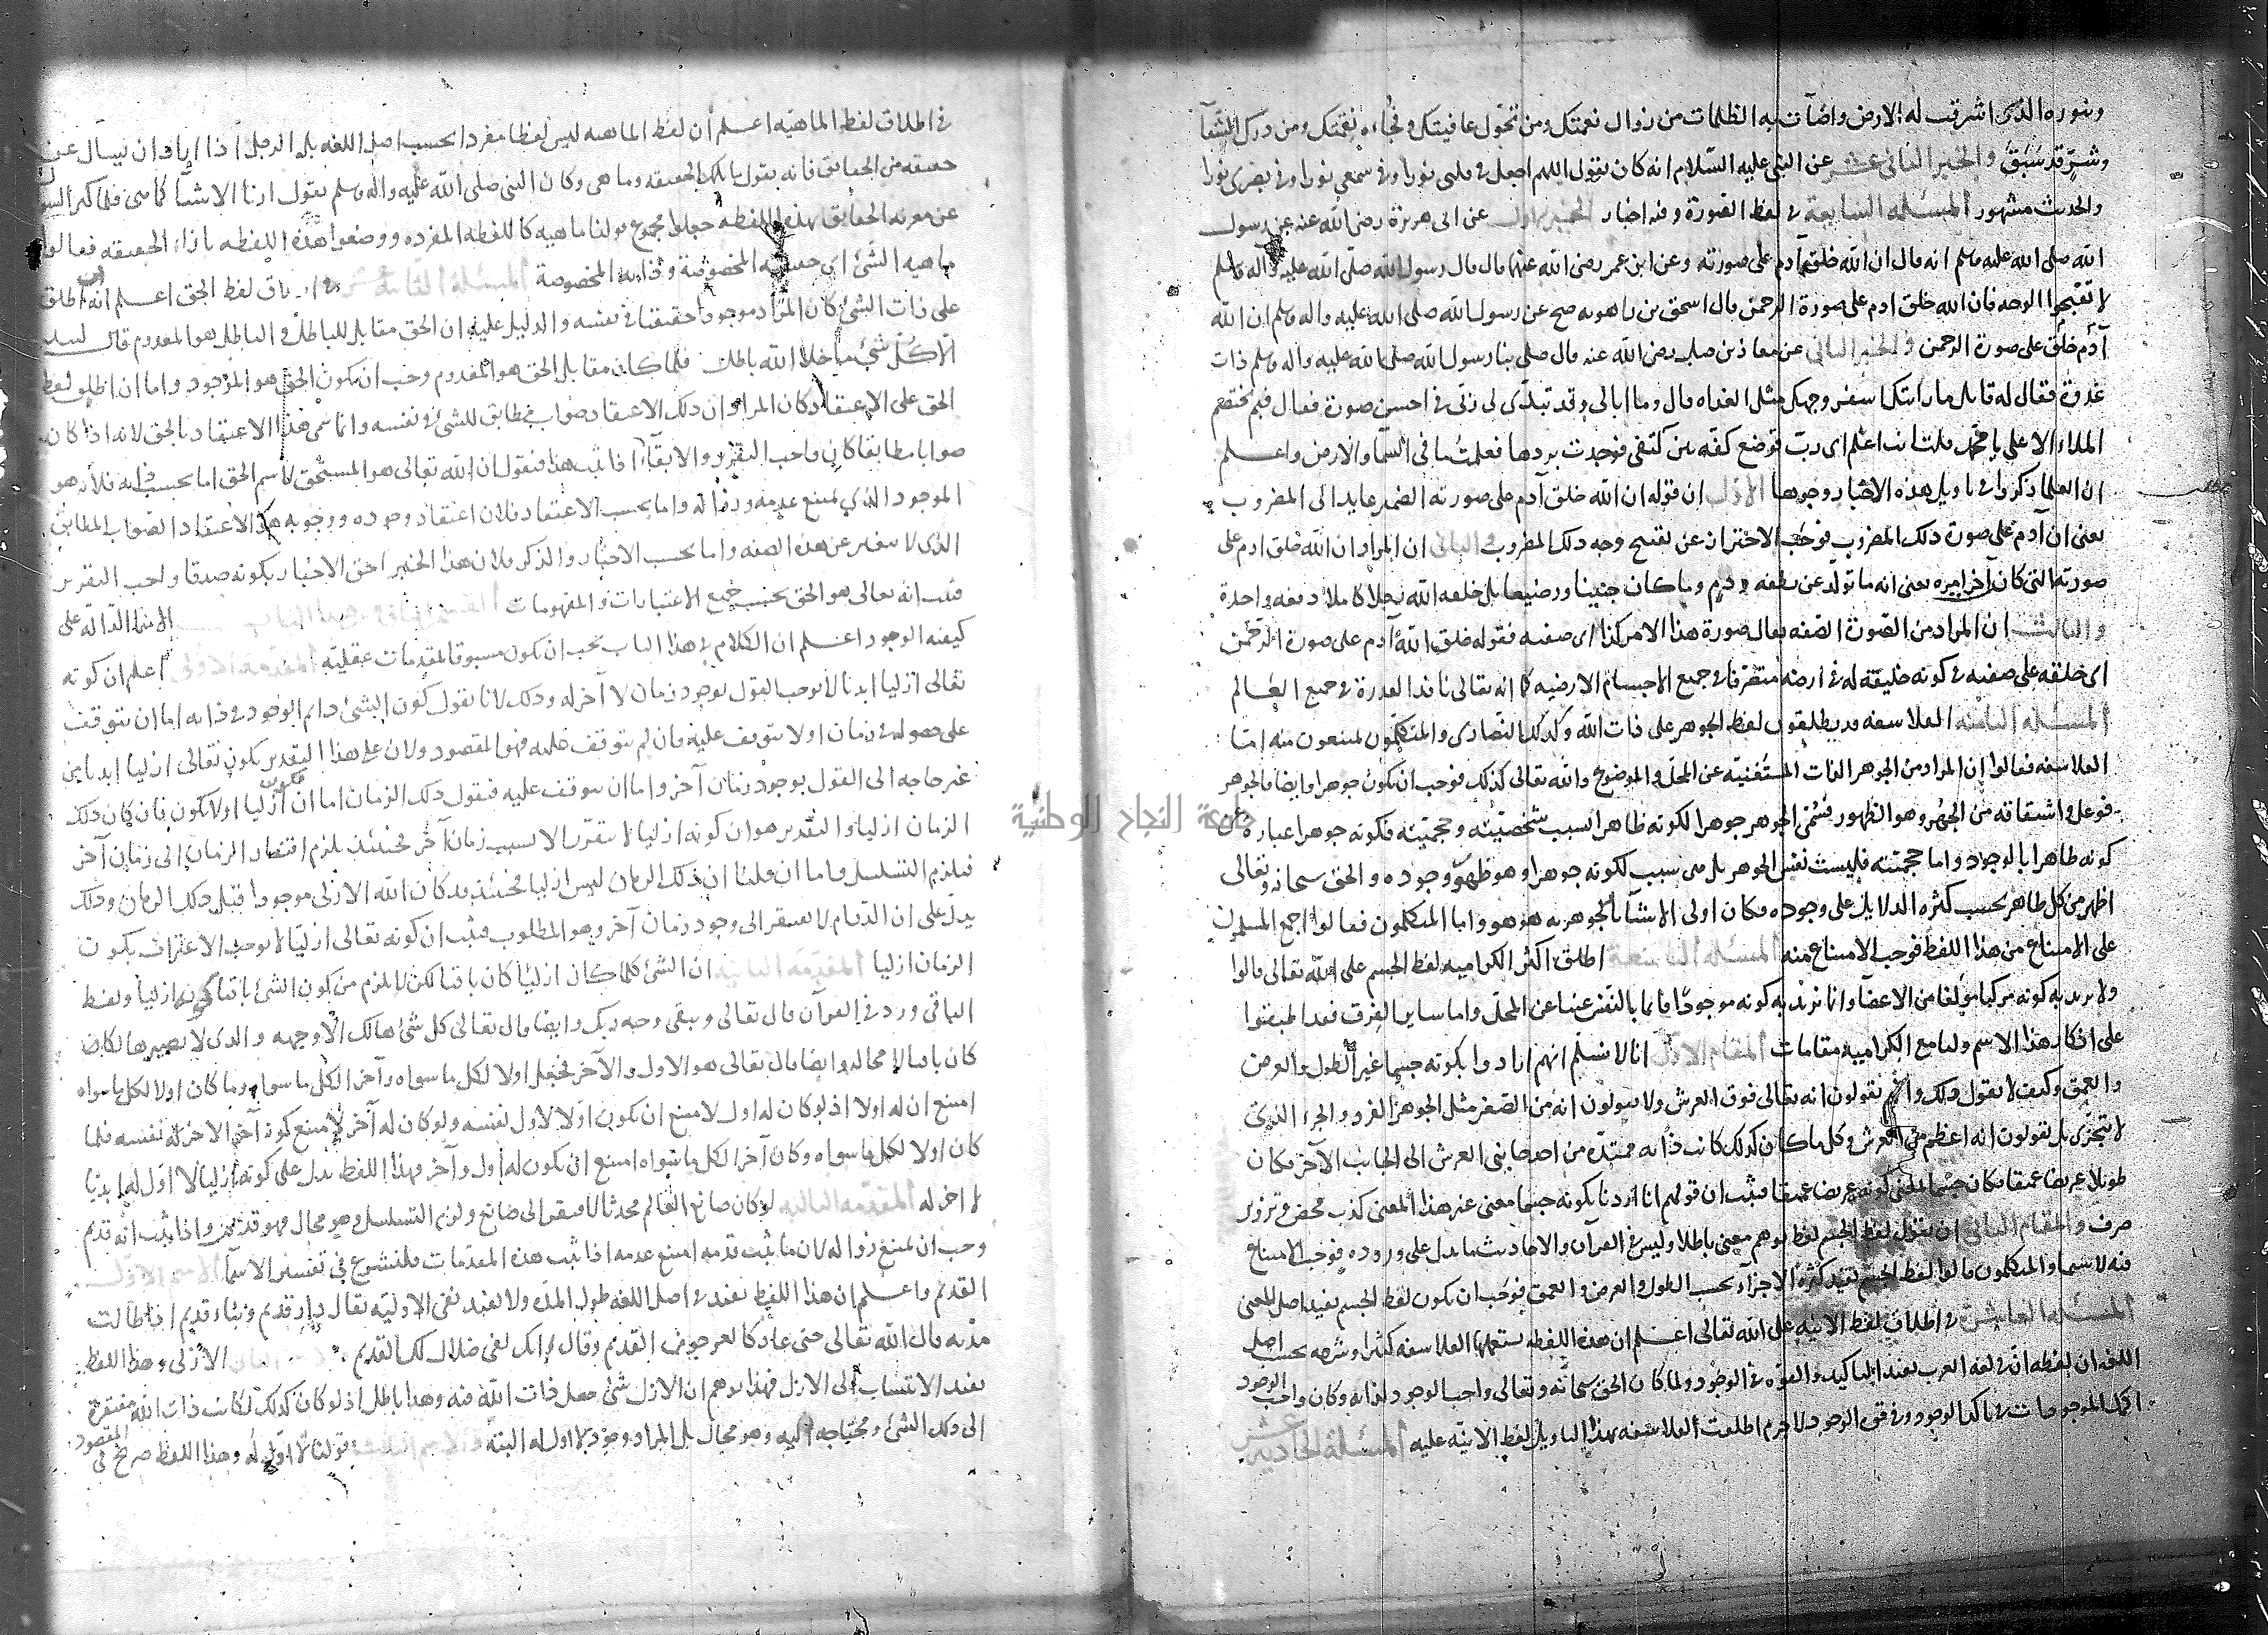 وبنوره الذى اشرقت له الارض واضآت به الظلمات من زوال نعمتك ومن تحول عافيتك وفجاءه نقمتك ومن درك الشقآ
وشر قد سبق والخبر الثانى عشر عن النبى عليه السلام انه كان يقول اللهم اجعل فى قلبى نورا وفى سمعى نورا وفى بصرى نورا
والحديث مشهور المسئله السابعة فى لفظ الصورة وفيه اخبار الخبر الاول عن ابى هريرة رضى الله عنه عن رسول
الله صلى الله عليه وسلم انه قال ان الله خلق آدم على صورته وعن ابن عمر رضى الله عنهما قال قال رسول الله صلى الله عليه وآله وسلم
لا تقبحوا الوجه فان الله خلق ادم على صورة الرحمن قال اسحق بن راهويه صح عن رسول الله صلى الله عليه وآله وسلم ان الله
آدم خلق على صورة الرحمن والخبر الثانى عن معاذ بن جبل رضى الله عنه قال صلى بنا رسول الله صلى الله عليه وآله وسلم ذات
غدوة فقال له قايل ما رأيتك اسفر وجها مثل الغداه قال وما ابالى وقد تبدى لى ربى فى احسن صورة فقال فيم يختصم
الملاء الاعلى يا محمد قلت انت اعلم اى رب فوضع كفه بين كتفى فوجدت بردها فعلمت ما فى السما والارض واعلم
ان العلما ذكروا فى تاويل هذه الاخبار وجوها الاول ان قوله ان الله خلق آدم على صورته الضمير عايد الى المضروب
يعنى ان آدم على صورة ذلك المضروب فوجب الاحتراز عن تقبيح وجه ذلك المضروب والثانى ان المراد ان الله خلق ادم على
صورته التى كان آخر امره يعنى انه ما تولد عن نطفه ودم وما كان جنينا ورضيعا بل خلقه الله رجلا كاملا دفعه واحدة
والثالث ان المراد من الصورة الصفه يقال صورة هذا الامر كذا اى صفته فقوله خلق الله آدم على صورة الرحمن
اى خلقه على صفته فى كونه خليفة له فى ارضه متصرفا فى جميع الاجسام الارضيه كما انه تعالى نافذ القدرة فى جميع العالم
المسئله الثامنه الفلاسفه قد يطلقون لفظ الجوهر على ذات الله وكذلك النصارى والمتكلمون يمتنعون منه اما
الفلاسفه فقالوا ان المراد من الجوهر الذات المستغنيه عن المحل والموضوع والله تعالى كذلك فوجب ان يكون جوهرا وايضا فالجوهر
فوعل واشتقاقه من الجهر وهو الظهور فسمى الجوهر جوهرا لكونه ظاهرا بسبب شخصيته وحجميته فكونه جوهرا عبارة عن
كونه ظاهرا بالوجود واما حجميته فليست نفس الجوهر بل هى سبب لكونه جوهرا وهو ظهور وجوده والحق سبحانه وتعالى
اظهر من كل ظاهر بحسب كثره الدلايل على وجوده فكان اولى الاشيآ بالجوهريه هو هو واما المتكلمون فقالوا اجمع المسلمون
على الامتناع من هذا اللفظ فوجب الامتناع منه المسئله التاسعة اطلق اكثر الكراميه لفظ الجسم على الله تعالى قالوا
ولا نريد به كونه مركبا مؤلفا من الاعضا وانما نريد به كونه موجودا قائما بالنفس غنيا عن المحل واما ساير الفرق فقد اطبقوا
على انكار هذا الاسم ولنا مع الكراميه مقامات المقام الاول انا لا نسلم انهم ارادوا بكونه جسما غير الطول والعرض
والعمق وكيف لا نقول ذلك وانهم يقولون انه تعالى فوق العرش ولا يقولون انه من الصغر مثل الجوهر الفرد والجزء الذى
لا يتجزى بل يقولون انه اعظم من العرش وكل ما كان كذلك كانت ذاته ممتده من احد جانبى العرش الى الجانب الآخر فكان
طويلا عريضا عميقا فكان جسما بمعنى كونه عريضا عميقا فثبت ان قولهم انا اردنا بكونه جسما معنى غير هذا المعنى كذب محض وتزوير
صرف والمقام الثانى ان نقول لفظ الجسم لفظ يوهم معنى باطلا وليس فى القرآن والاحاديث ما يدل على وروده فوجب الامتناع
منه لاسيما والمتكلمون قالوا لفظ الجسم يفيد كثرة الاجزآء بحسب الطول والعرض والعمق فوجب ان يكون لفظ الجسم يفيد اصل المعنى
المسئله العاشرة فى اطلاق لفظ الانيه على الله تعالى اعلم ان هذه اللفظه يستعملها الفلاسفه كثيرا وشرحه بحسب اصل
اللغه ان لفظه ان فى لغه العرب يفيد التاكيد والقوه فى الوجود ولما كان الحق سبحانه وتعالى واجب الوجود لذاته وكان واجب الوجود
اكمل الموجودات فى تاكد الوجود وفى قوى الوجود لا جرم اطلقت الفلاسفه بهذا التاويل لفظ الانيه عليه المسئله الحاديه عشر
فى اطلاق لفظ الماهيه اعلم ان لفظ الماهيه ليس لفظا مفردا بحسب اصل اللغه بل الرجل اذا اراد ان يسال عن
حقيقه من الحقايق فانه يقول ما تلك الحقيقه وما هى وكان النبى صلى الله عليه وآله وسلم يقول ارنا الاشيآ كما هى فلما كثر السؤال
عن معرفه الحقائق بهذه اللفظه جعلوا مجموع قولنا ماهيه كاللفظه المفرده ووضعوا هذه اللفظه بازاء الحقيقه فقالوا
ماهيه الشئ اى حقيقته المخصوصة وذاته المخصوصة المسئلة الثانيه عشر فى اطلاق لفظ الحق اعلم انه ان اطلق
على ذات الشئ كان المراد موجودا حقيقيا فى نفسه والدليل عليه ان الحق مقابل للباطل والباطل هو المعدوم قال لبيد
الا كل شئ ما خلا الله باطل فلما كان مقابل الحق هو المعدوم وجب ان يكون الحق هو الموجود واما ان اطلق لفظ
الحق على الاعتقاد كان المراد ان ذلك الاعتقاد صواب مطابق للشئ فى نفسه وانما سمى هذا الاعتقاد بالحق لانه اذا كان
صوابا مطابقا كان واجب التقرير والابقآء اذا ثبت هذا فنقول ان الله تعالى هو المستحق لاسم الحق اما بحسب ذاته فلأنه هو
الموجود الذى يمتنع عدمه وزواله واما بحسب الاعتقاد فلان اعتقاد وجوده ووجوبه هو الاعتقاد الصواب المطابق
الذى لا يتغير عن هذه الصفه واما بحسب الاخبار والذكر فلان هذا الخبر احق الاخبار بكونه صدقا واجب التقرير
فثبت انه تعالى هو الحق بحسب جميع الاعتبارات والمفهومات القسم الثانى من هذا الباب الاسما الداله على
كيفيه الوجود اعلم ان الكلام فى هذا الباب يجب ان يكون مسبوقا بمقدمات عقليه المقدمه الاولى اعلم ان كونه
تعالى ازليا ابديا لا يوجب القول بوجود زمان لا آخر له وذلك لانا نقول كون الشئ دايم الوجود فى ذاته اما ان يتوقف
على حصوله فى زمان او لا يتوقف عليه فان لم يتوقف عليه فهو المقصود ولان على هذا التقدير يكون تعالى ازليا ابديا من
غير حاجه الى القول بوجود زمان آخر واما ان يتوقف عليه فنقول ذلك الزمان اما ان يكون ازليا او لا يكون فان كان ذلك
الزمان ازليا والتقدير هو ان كونه ازليا لا يتقرر الا بسبب زمان آخر فحينئذ يلزم افتقار الزمان الى زمان آخر
فيلزم التسلسل واما ان قلنا ان ذلك الزمان ليس ازليا فحينئذ قد كان الله الازلى موجودا قبل ذلك الزمان وذلك
يدل على ان الدوام لا يفتقر الى وجود زمان آخر وهو المطلوب فثبت ان كونه تعالى ازليا لا يوجب الاعتراف بكون
الزمان ازليا المقدمه الثانيه ان الشئ كلما كان ازليا كان باقيا لكن لا يلزم من كون الشئ باقيا كونه ازليا ولفظ
الباقى ورد فى القرآن قال تعالى ويبقى وجه ربك وايضا قال تعالى كل شئ هالك الا وجهه والذى لا يصير هالكا
كان باقيا لا محاله وايضا قال تعالى هو الاول والآخر فجعله اولا لكل ما سواه وآخرا لكل ما سواه وما كان اولا لكل ما سواه
امتنع ان له اولا اذ لو كان له اول لامتنع ان يكون اولا لاول نفسه ولو كان له آخر لامتنع كونه آخرا لآخر نفسه فلما
كان اولا لكل ما سواه وكان آخرا لكل ما سواه امتنع ان يكون له اول وآخر فهذا اللفظ يدل على كونه ازليا لا اول له ابديا
لا اخر له المقدمه الثالثه لو كان صانع العالم محدثا لافتقر الى صانع ولزم التسلسل وهو محال فهو قديم واذا ثبت انه قديم
وجب ان يمتنع زواله لان ما ثبت قدمه امتنع عدمه اذا ثبت هذه المقدمات فلنشرع فى تفسير الاسمآ الاسم الاول
القديم واعلم ان هذا اللفظ يفيد فى اصل اللغه طول المدة ولا يفيد نفى الاوليه يقال دار قديم وبناء قديم اذا طالت
مدته قال الله تعالى حتى عاد كالعرجون القديم وقال انك لفى ضلالك القديم الازلى وهذا اللفظ
يفيد الانتساب الى الازل فهذا يوهم ان الازل شئ حصل ذات الله فيه وهذا باطل اذ لو كان كذلك لكانت ذات الله مفتقرة
الى ذلك الشئ ومحتاجه اليه وهو محال بل المراد وجود لا اول له البته الاسم الثالث قولنا لا اول له وهذا اللفظ صريح فى المقصود
جامعة النجاح الوطنية